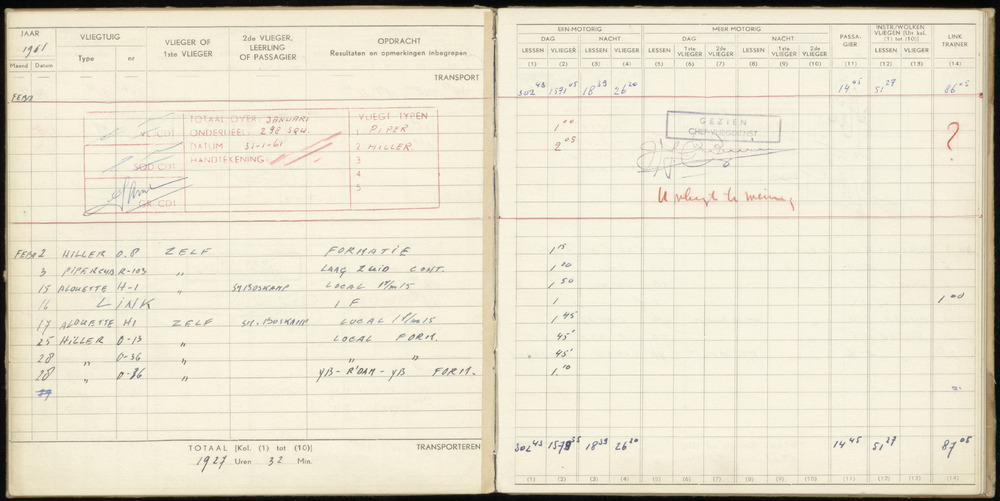 JAAR
1961
Maand Datum
VLIEGTUIG
Type nr
VLIEGER OF
1ste VLIEGER
2de VLIEGER,
LEERLING
OF PASSAGIER
OPDRACHT
Resultaten en opmerkingen inbegrepen
TRANSPORT
EEN-MOTORIG
DAG NACHT
LESSEN VLIEGER LESSEN VLIEGER
(1) (2) (3) (4)
MEER MOTORIG
DAG NACHT
LESSEN 1ste VLIEGER 2de VLIEGER LESSEN 1ste VLIEGER 2de VLIEGER
(5) (6) (7) (8) (9) (10)
PASSA-
GIER
(11)
INSTR/WOLKEN
VLIEGEN (Uit kol.
(1) tot (10))
LESSEN VLIEGER
(12) (13)
LINK
TRAINER
(14)
302 43 1571 05 18 39 26 20 14 45 51 27 86 05
TOTAAL OVER: JANUARI
ONDERDEEL: 298 SQN.
DATUM 31-1-61
HANDTEKENING:
SQD CDT
GR. CDT
VLIEGT TYPEN
1 PIPER
2 HILLER
3
4
5
1 00
2 05
GEZIEN
CHEF VLIEGDIENST
?
U vliegt te weinig
FEBR 2 HILLER O.8 ZELF FORMATIE 1 15
3 PIPERCUB R-103 " LAAG ZUID CONT. 1 20
15 ALOUETTE H-1 " SM BOSKAMP LOCAL 1 50
16 LINK I F 1 1 00
17 ALOUETTE H1 ZELF SM. BOSKAMP LOCAL 1 45
25 HILLER O-13 " LOCAL FORM. 45'
28 " O-36 " " " 45'
28 " O-36 " YB - R'DAM - YB FORM. 1 10
TOTAAL [Kol. (1) tot (10)]
1927 Uren 32 Min.
TRANSPORTEREN
302 43 18 39 26 20 14 45 51 27 87 05
(1) (2) (3) (4) (5) (6) (7) (8) (9) (10) (11) (12) (13) (14)